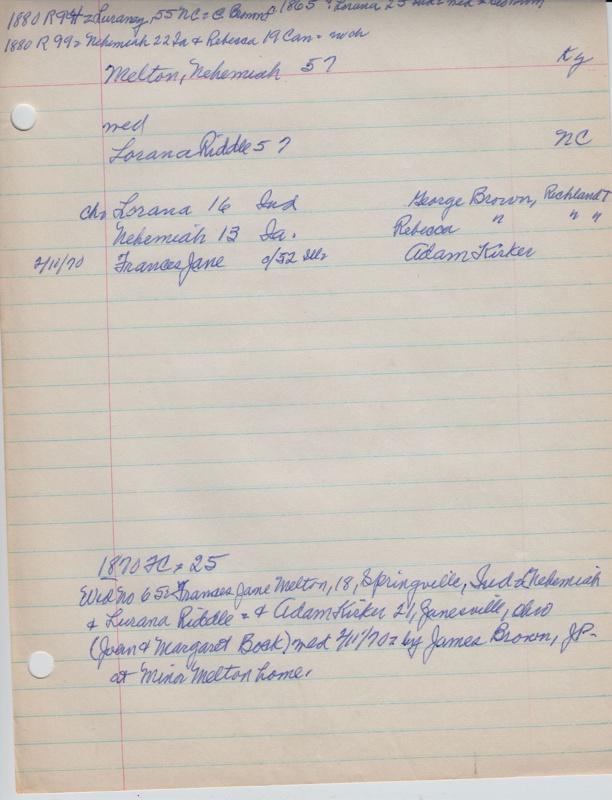 1880 R94 = Luraney, 55 NC = C. Brown 1865 = Lorana 25 Ind
1880 R 99 = Nehemiah 22 Ia & Rebecca 19 Can = no ch
Melton, Nehemiah 57 Ky
med
Lorana Riddle 57 NC
ch = Lorana 16 Ind George Brown, Richland T
Nehemiah 13 Ia. Rebecca " " "
2/11/70 Frances Jane Adam Kirker
1870 FC = 25
Wed No 65 = Frances Jane Melton, 18, Springville, Ind = Nehemiah
& Lurana Riddle = & Adam Kirker 21, Janesville, Ohio
(John & Margaret Boak) med 2/11/70 = by James Brown, JP -
at Minor Melton home.